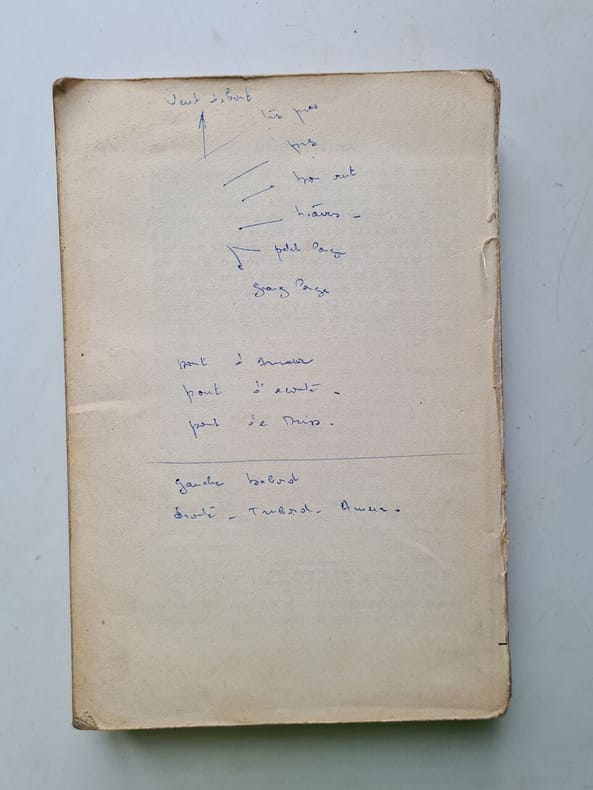 Vent debout
très près
près
bon
travers -
petit large
grand large
point d'Amure
point d'écoute -
point de Driss.
gauche babord
droite - Tribord - Amure.